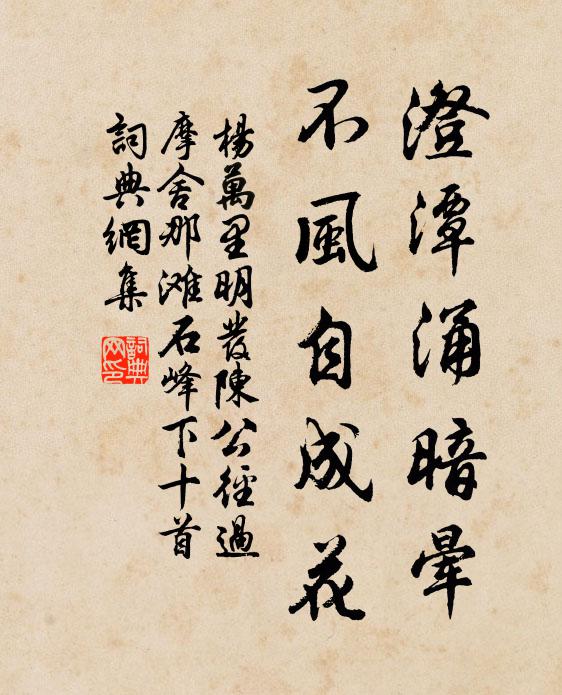 澄潭涌暗暈
不風自成花
楊萬里明發陳公徑過
摩舍那滩石峰下十首
詞典網集
詞典
网印